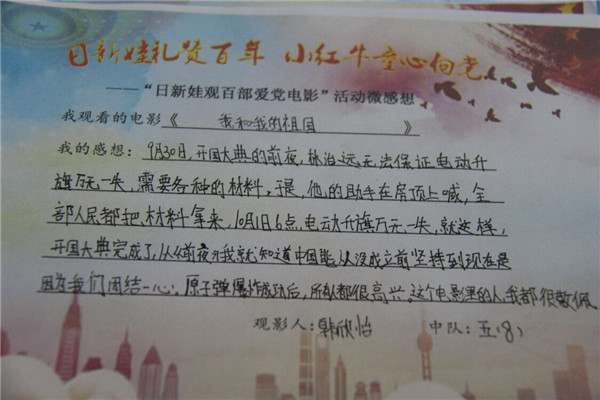 日新娃礼赞百年 小红牛童心向党
——“日新娃观百部爱党电影”活动微感想
我观看的电影《 我和我的祖国 》
我的感想：9月30日，开国大典的前夜，林治远无法保证电动升
旗万无一失，需要各种的材料，于是，他的助手在房顶上喊，全
部人民都把材料拿来，10月1日6点，电动升旗万无一失，就这样，
开国大典完成了，从《前夜》我就知道中国能从没成立前坚持到现在是
因为我们团结一心。原子弹爆炸成功后，所有都很高兴。这个电影里的人，我都很敬佩
观影人：韩欣怡 中队：五（8）